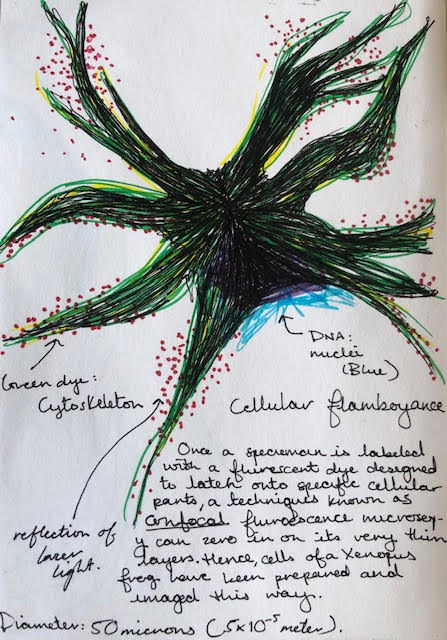 DNA:
nuclei
(Blue)
Green dye:
Cytoskeleton
Cellular flamboyance
Once a specieman is labeled
with a fluirescent dye designed
to latch onto specific cellular
parts, a technique known as
Confocal fluroescence microscp-
y can zero in on its very thin
layers. Hence, cells of a Xenopus
frog have been prepared and
imaged this way.
reflection of
laser
light.
Diameter: 50 microns (5x10⁻⁵ meter).